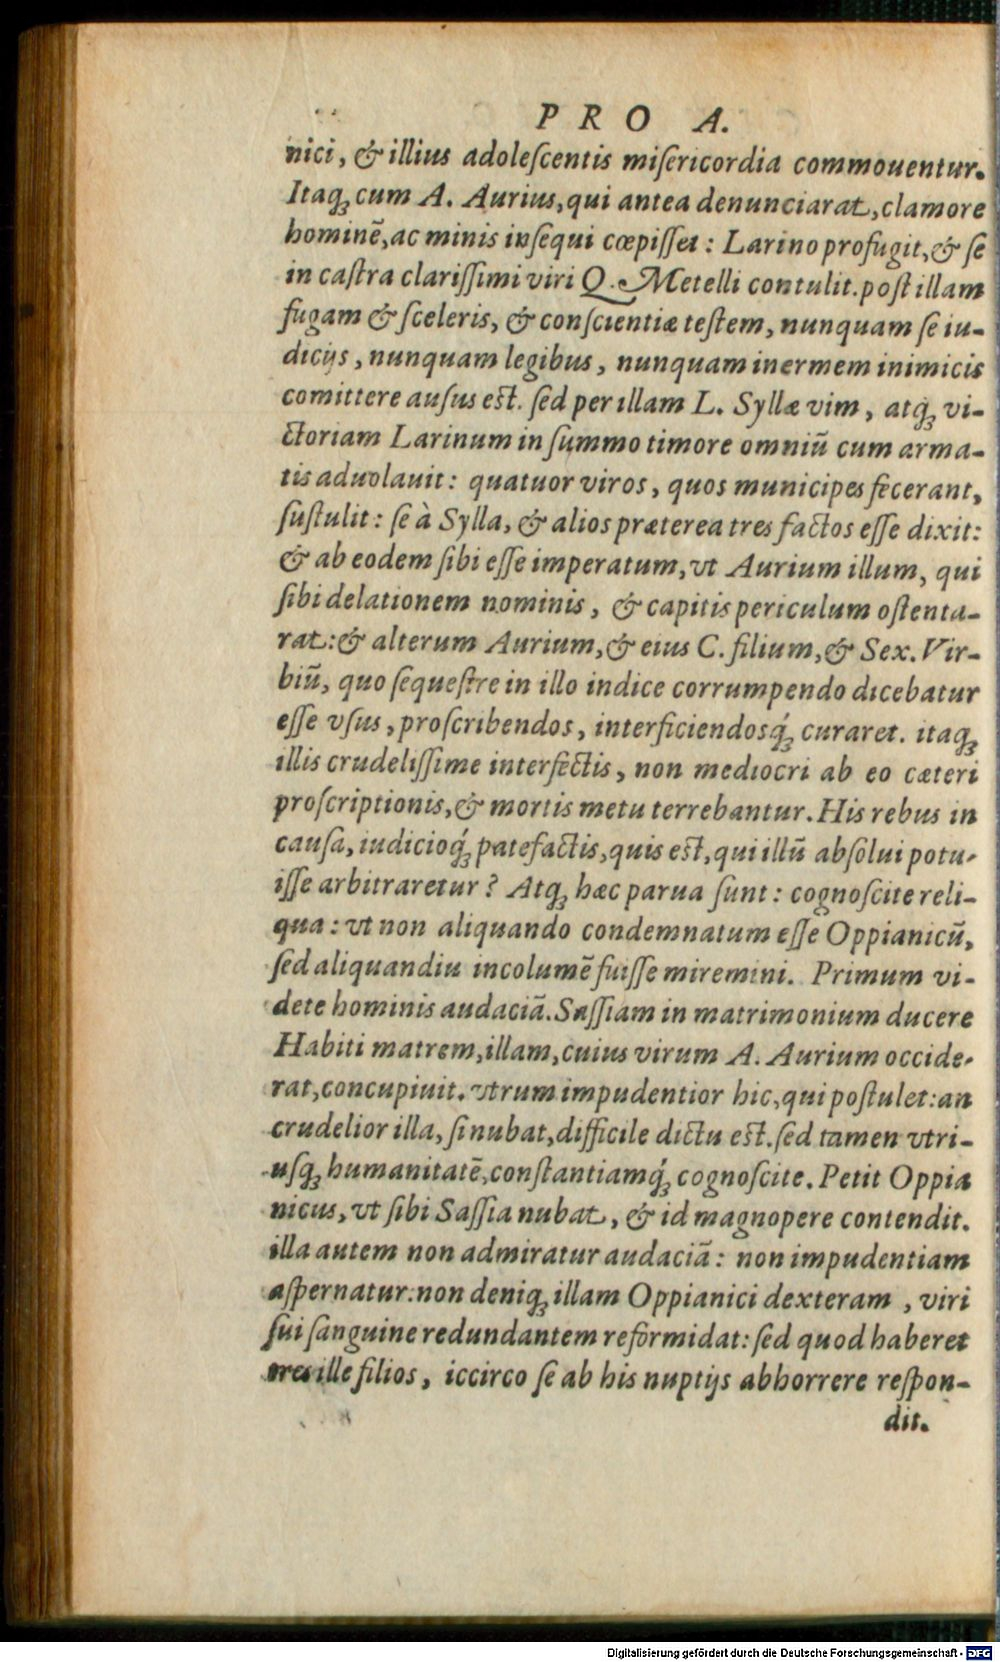 PRO A.
nici, & illius adoleſcentis miſericordia commouentur.
Itaq́ꝫ cum A. Aurius, qui antea denunciarat, clamore
hominē, ac minis inſequi cœpiſſet : Larino profugit, & ſe
in caſtra clariſſimi viri Q. Metelli contulit. poſt illam
fugam & ſceleris, & conſcientiæ teſtem, nunquam ſe iu-
dicijs, nunquam legibus, nunquam inermem inimicis
comittere auſus eſt. ſed per illam L. Syllæ vim, atqꝫ vi-
ctoriam Larinum in ſummo timore omniū cum arma-
tis aduolauit : quatuor viros, quos municipes fecerant,
ſuſtulit : ſe à Sylla, & alios præterea tres factos eſſe dixit:
& ab eodem ſibi eſſe imperatum, vt Aurium illum, qui
ſibi delationem nominis, & capitis periculum oſtenta-
rat: & alterum Aurium, & eius C. filium, & Sex. Vir-
biū, quo ſequeſtre in illo indice corrumpendo dicebatur
eſſe vſus, proſcribendos, interficiendosq́ꝫ curaret. itaqꝫ
illis crudeliſſime interfectis, non mediocri ab eo cæteri
proſcriptionis, & mortis metu terrebantur. His rebus in
cauſa, iudicioq́ꝫ patefactis, quis eſt, qui illū abſolui potu-
iſſe arbitraretur ? Atqꝫ hæc parua ſunt : cognoſcite reli-
qua : vt non aliquando condemnatum eſſe Oppianicū,
ſed aliquandiu incolumē fuiſſe miremini. Primum vi-
dete hominis audaciā. Saſſiam in matrimonium ducere
Habiti matrem, illam, cuius virum A. Aurium occide-
rat, concupiuit. vtrum impudentior hic, qui poſtulet: an
crudelior illa, ſi nubat, difficile dictu eſt. ſed tamen vtri-
uſqꝫ humanitatē, conſtantiamq́ꝫ cognoſcite. Petit Oppia
nicus, vt ſibi Saſſia nubat, & id magnopere contendit.
illa autem non admiratur audaciā : non impudentiam
aſpernatur: non deniqꝫ illam Oppianici dexteram , viri
ſui ſanguine redundantem reformidat: ſed quod haberet
tres ille filios, iccirco ſe ab his nuptijs abhorrere reſpon-
dit.
Digitalisierung gefördert durch die Deutsche Forschungsgemeinschaft - DFG